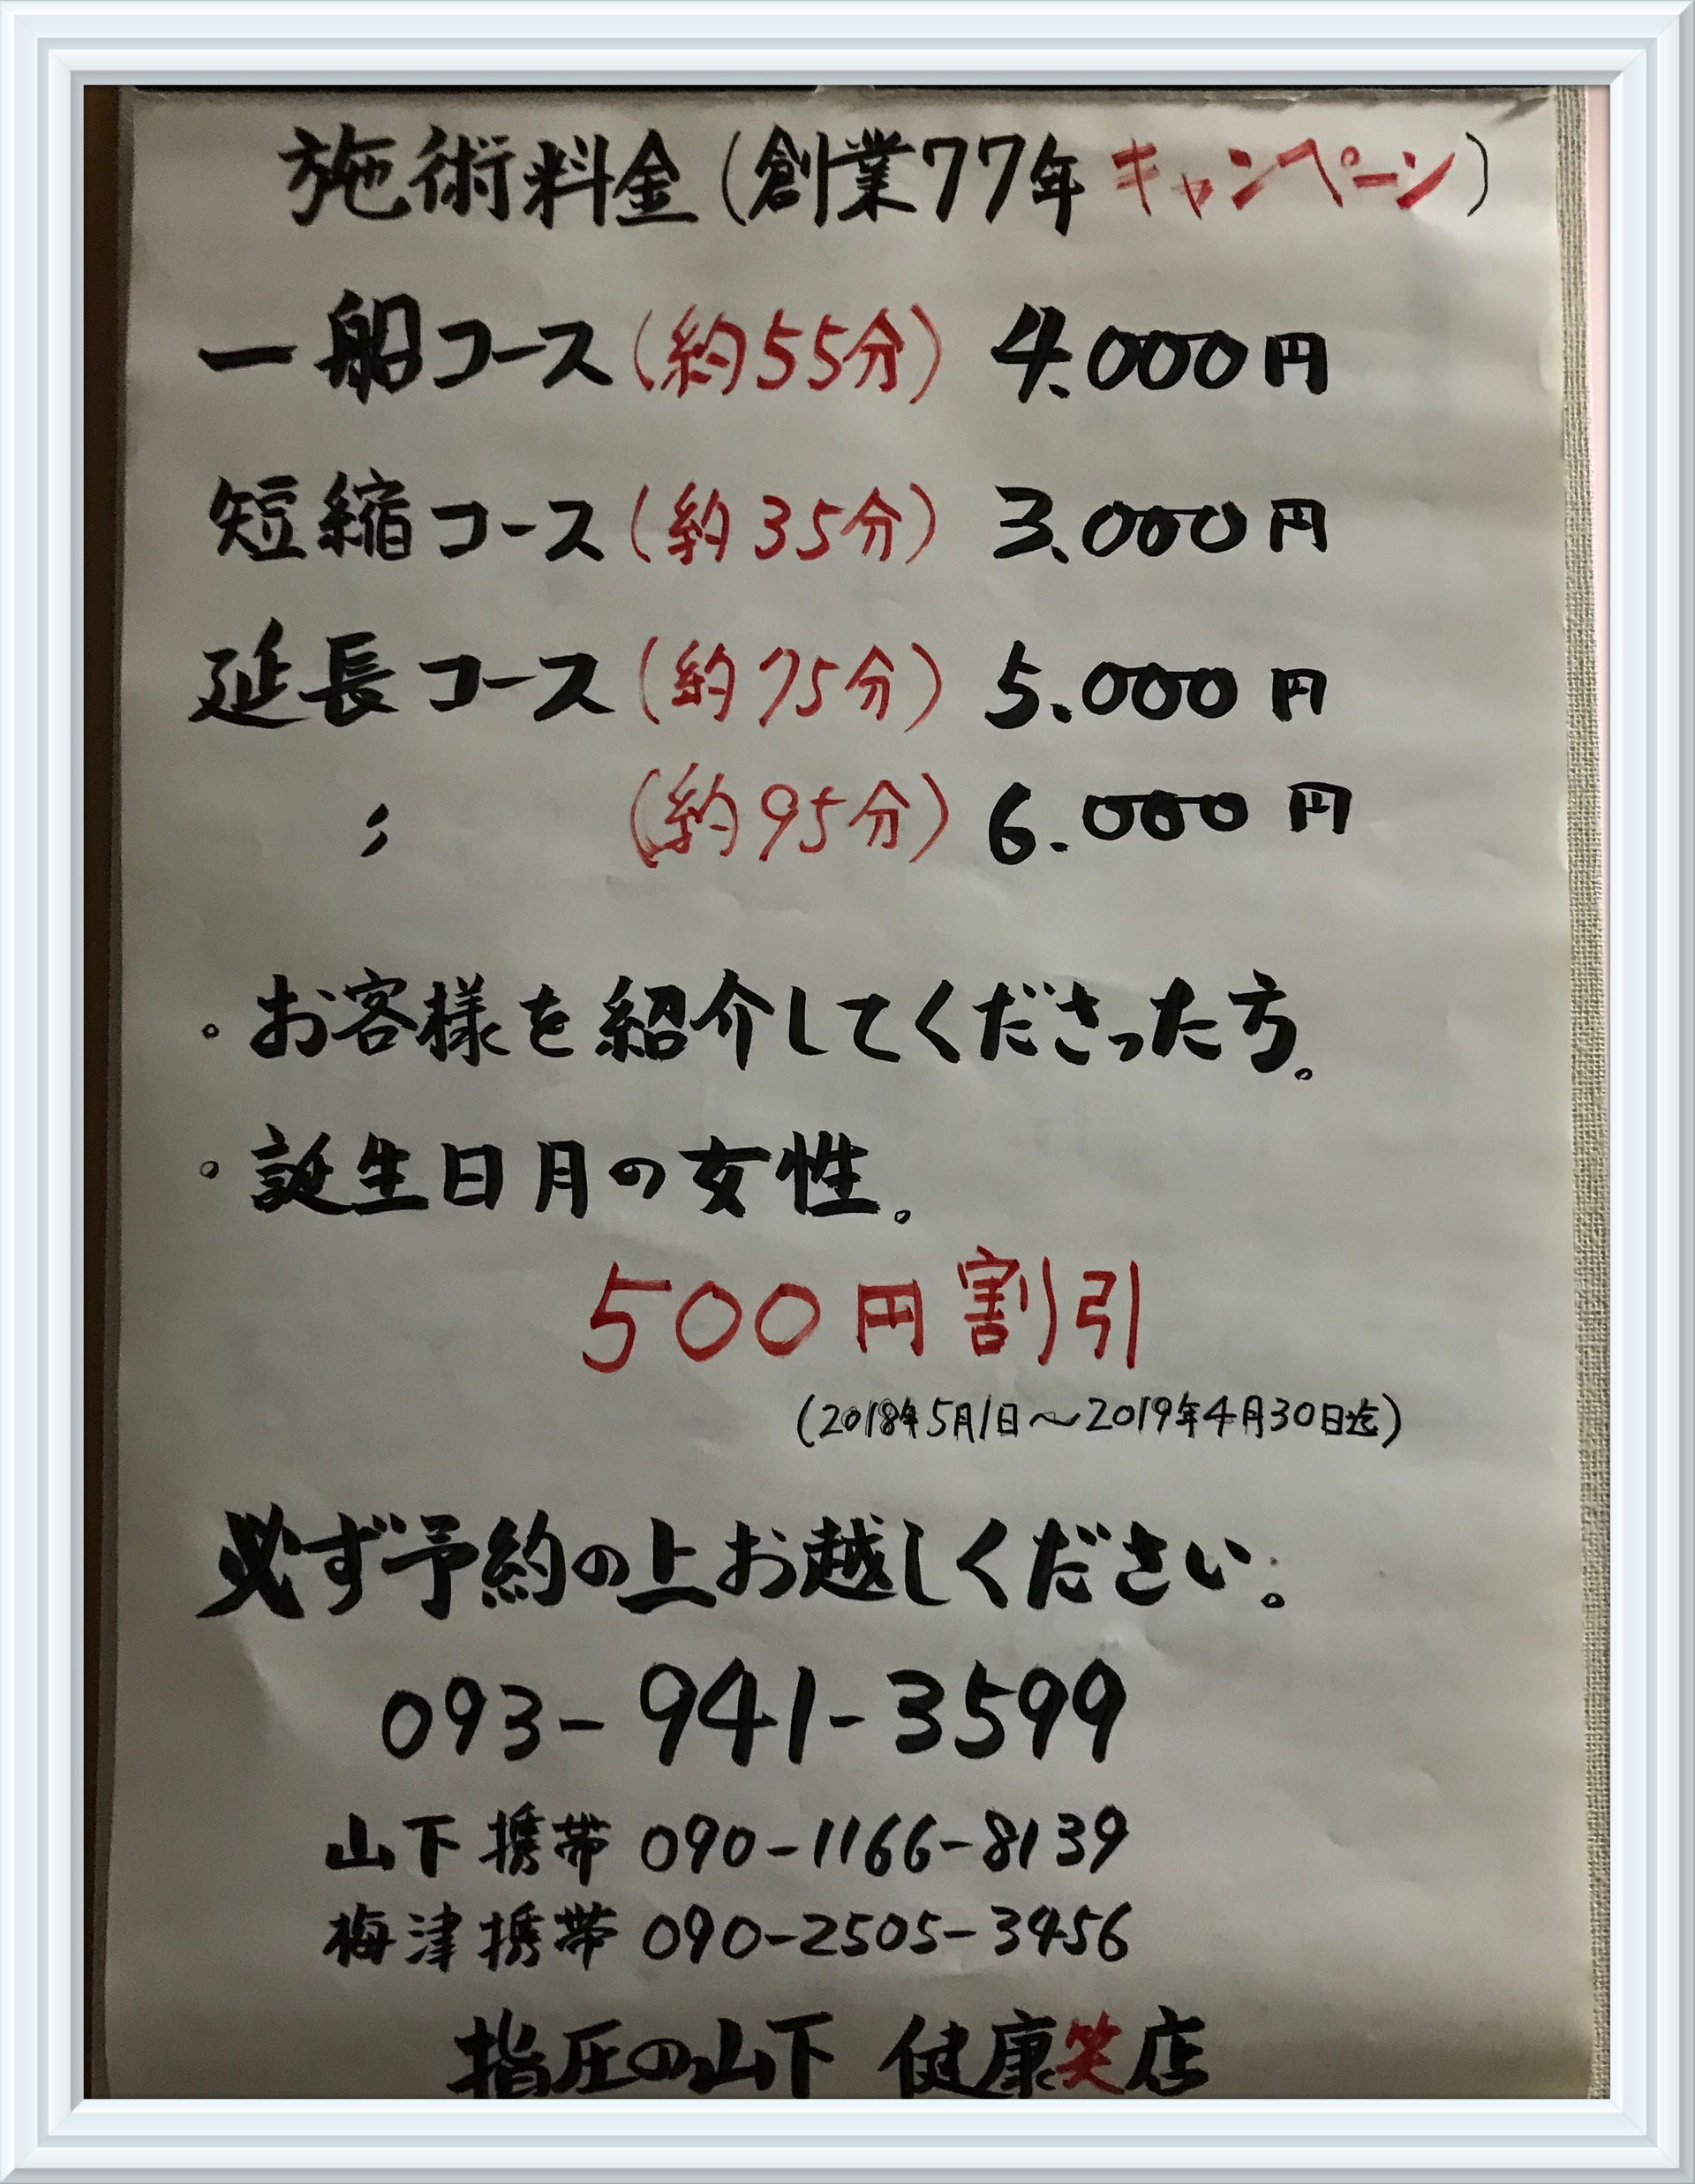 施術料金(創業77年キャンペーン)
一般コース(約55分) 4.000円
短縮コース(約35分) 3.000円
延長コース(約75分) 5.000円
〃 (約95分) 6.000円
。お客様を紹介してくださった方。
。誕生日月の女性。
500円割引
(2018年5月1日〜2019年4月30日迄)
必ず予約の上お越しください。
093-941-3599
山下携帯 090-1166-8139
梅津携帯 090-2505-3456
指圧の山下 健康笑店